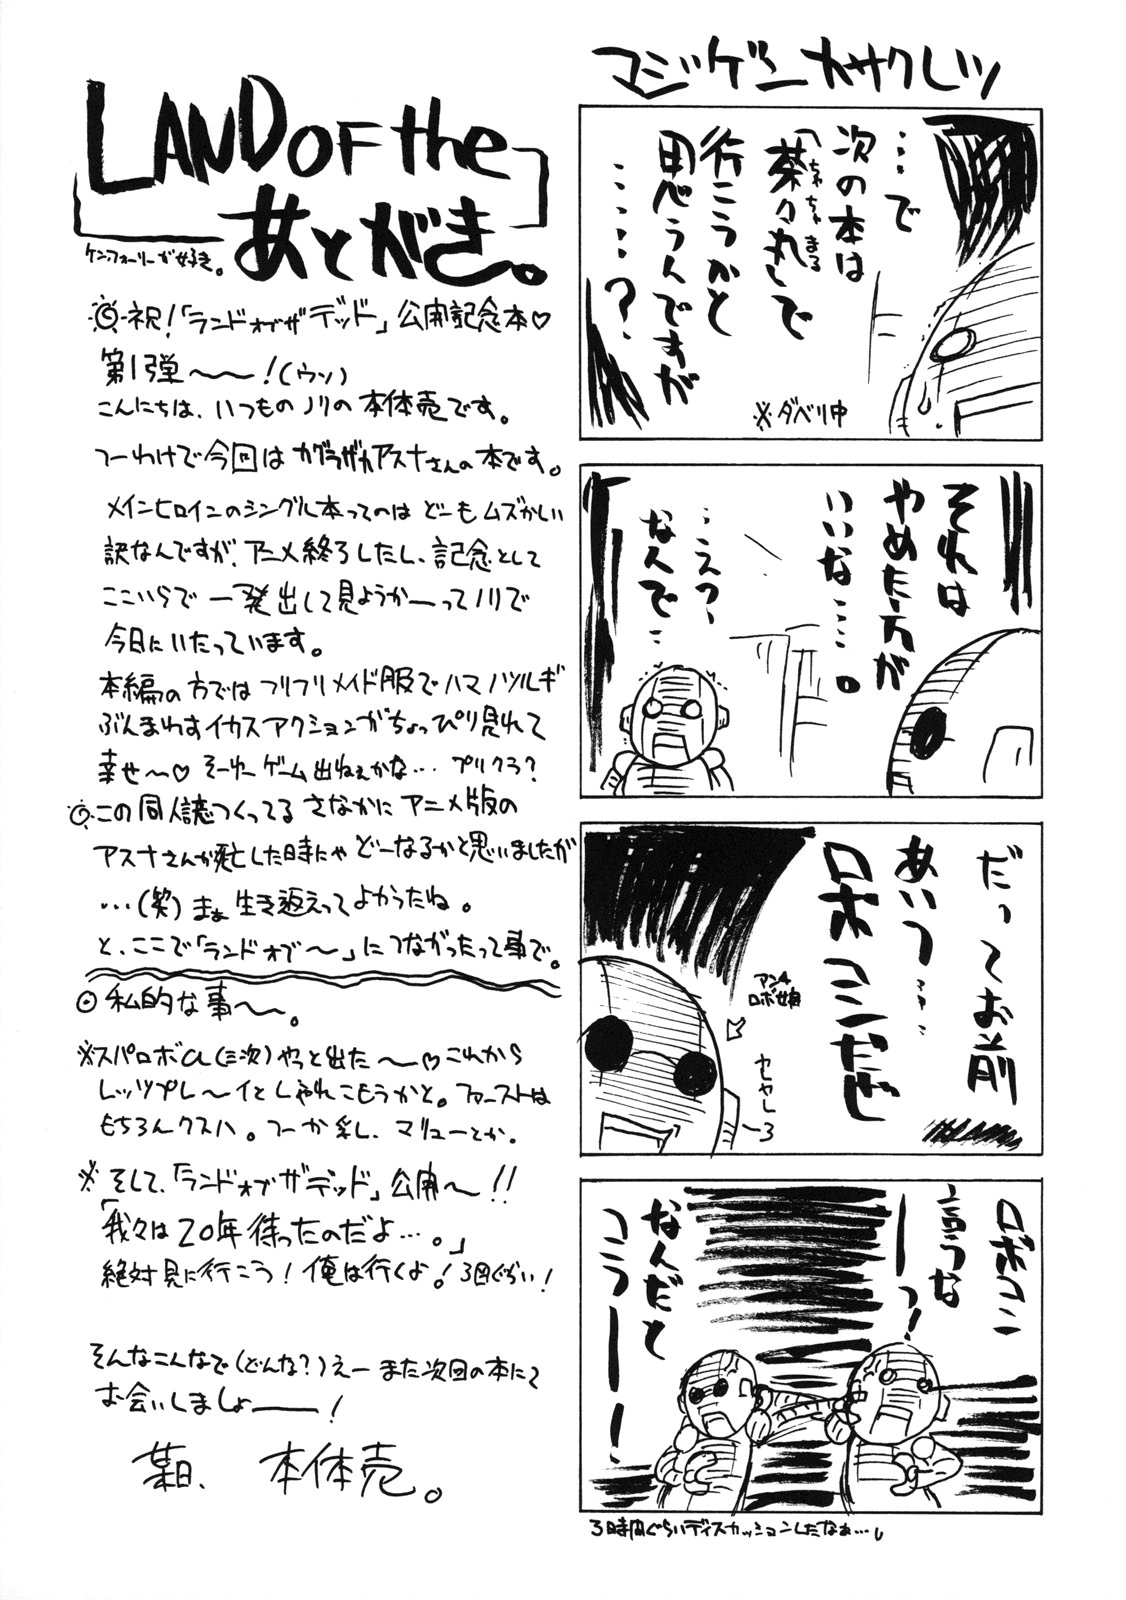 LAND OF the
あとがき。
ケン・フォーリーが好き。
◎祝!「ランドオブザデッド」公開記念本♡
第1弾〜〜!(ウソ)
こんにちは、いつものノリの本体売です。
つーわけで今回はカグラザカアスナさんの本です。
メインヒロインのシングル本ってのはどーもムズかしい
訳なんですが、アニメ終了したし、記念として
ここいらで一発出して見ようかーってノリで
今日にいたっています。
本編の方ではフリフリメイド服でハマノツルギ
ぶんまわすイカスアクションがちょっぴり見れて
幸せ〜♡そーゆーゲーム出ねぇかな…プリクラ?
◎この同人誌つくってるさなかにアニメ版の
アスナさんが死亡した時にゃどーなるかと思いましたが
…(笑)まぁ生き返えってよかったね。
と、ここで「ランドオブ〜」につながったって事で。
◎私的な事〜〜。
※スパロボα(三次)やっと出た〜〜♡これから
レッツプレ〜イとしゃれこもうかと。ファーストは
もちろんクスハ。つーか乳、マリューとか。
※そして、「ランドオブザデッド」公開〜!!
「我々は20年待ったのだよ…。」
絶対見に行こう!俺は行くよ!3回ぐらい!
そんなこんなで(どんな?)えーまた次回の本にて
お会いしましょーー!
某日、本体売。
マジゲンカサクレツ
…で
次の本は
「茶々丸」で
ちゃちゃまる
行こうかと
思うんですが
……?
※ダベリ中
それは
やめた方が
いいな…。
…えっ、
なんで…
だってお前
あいつ…
ロボコンだぜ
アンチ
ロボ娘
ロボコン
言うな
ーーっ!
なんだと
コラーー!
3時間ぐらいディスカッションしたなぁ…。